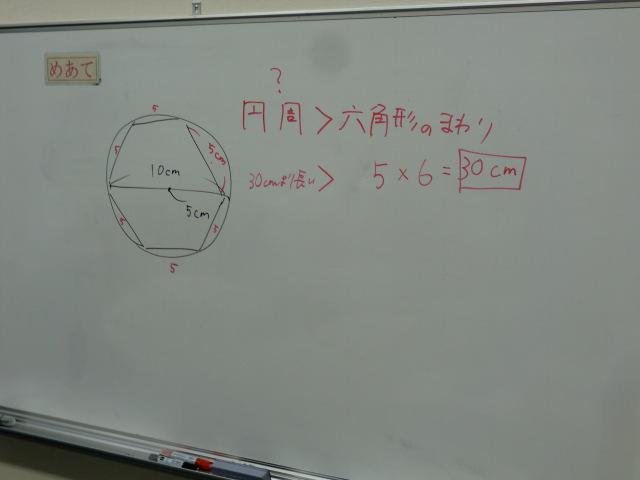 めあて
?
円周 > 六角形のまわり
30cmより長い > 5×6=30cm
5
5
5cm
10cm
5cm
5
5
5